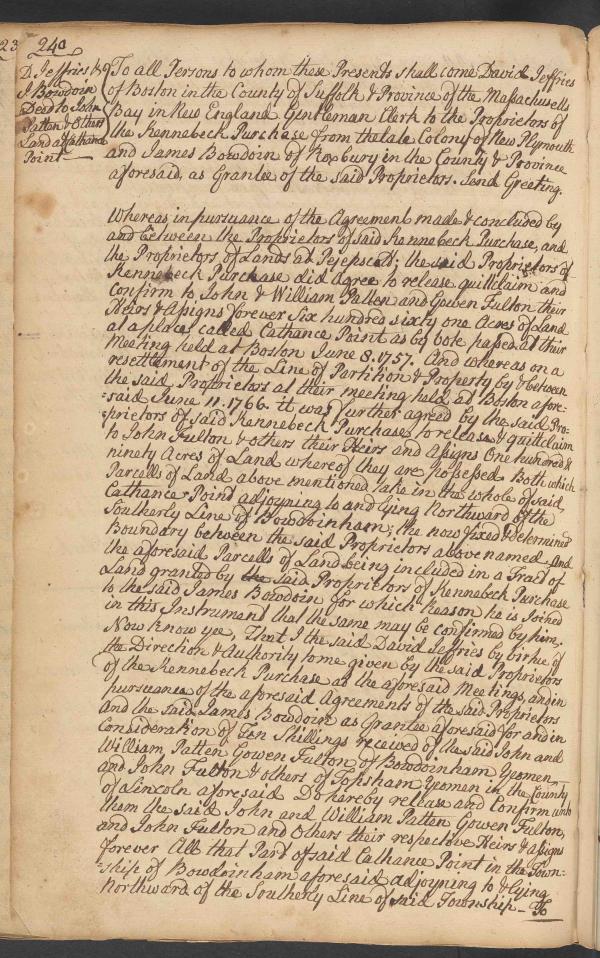 23
240
D. Jeffries &
J Bowdoin
Deed to John
Patten & Others
Land at Cathance
Point
To all Persons to whom these Presents shall come David Jeffries
of Boston in the County of Suffolk & Province of the Massachusetts
Bay in New England Gentleman Clerk to the Proprietors of
the Kennebeck Purchase from the late Colony of New Plymouth
and James Bowdoin of Roxbury in the County & Province
aforesaid, as Grantee of the said Proprietors. Send Greeting.
Whereas in pursuance of the Agreement made & concluded by
and between the Proprietors of said Kennebeck Purchase, and
the Proprietors of Lands at Pejepscot; the said Proprietors of
Kennebeck Purchase did agree to release quittclaim and
Confirm to John & William Patten and Gowen Fulton their
Heirs & Assigns forever Six hundred sixty one Acres of Land
at a place called Cathance Point as by vote passed at their
Meeting held at Boston June 8. 1757. And whereas on a
resettlement of the Line of Partition & Property by & between
the said Proprietors at their meeting held at Boston afore=
=said June 11. 1766. it was further agreed by the said Pro=
=prietors of said Kennebeck Purchase to release & quittclaim
to John Fulton & others their Heirs and Assigns One hundred &
ninety Acres of Land whereof they are possessed Both which
Parcells of Land above mentioned take in the whole of said
Cathance Point adjoyning to and lying Northward of the
Southerly Line of Bowdoinham, the now fixed & determined
Boundary between the said Proprietors above named and
the aforesaid Parcells of Land being included in a Tract of
Land granted by the said Proprietors of Kennebeck Purchase
to the said James Bowdoin for which reason he is joined
in this Instrument that the same may be confirmed by him.
Now know yee, That I the said David Jeffries by virtue of
the Direction & Authority to me given by the said Proprietors
of the Kennebeck Purchase at the aforesaid Meetings, and in
pursuance of the aforesaid Agreements of the said Proprietors
And the said James Bowdoin as Grantee aforesaid for and in
Consideration of Ten Shillings received of the said John and
William Patten Gowen Fulton of Bowdoinham Yeomen
and John Fulton & others of Topsham Yeomen in the County
of Lincoln aforesaid Do hereby release and Confirm unto
them the said John and William Patten Gowen Fulton,
and John Fulton and Others their respective Heirs & assigns
forever All that Part of said Cathance Point in the Town=
=ship of Bowdoinham aforesaid adjoyning to & lying
Northward of the Southerly Line of said Township - To